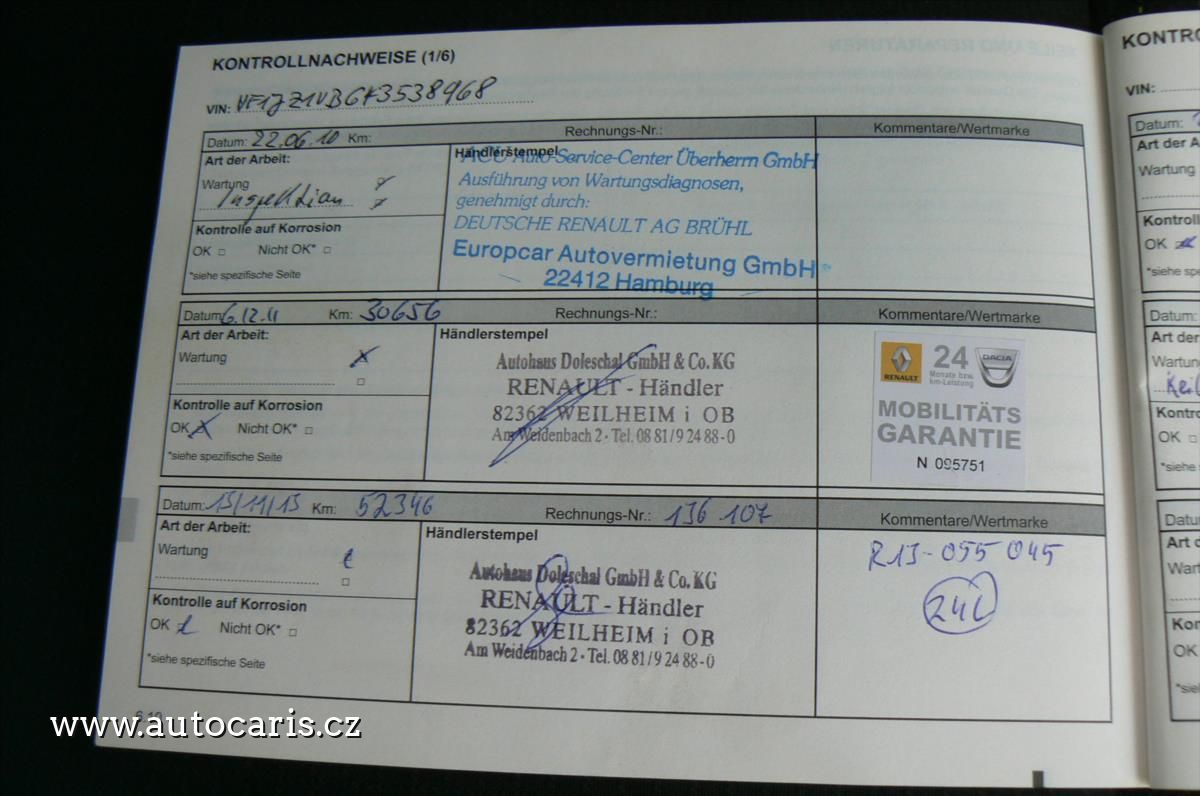 KONTROLLNACHWEISE (1/6)
VIN: VF1JZ1VBGK3538968
Datum: 22.06.10 Km: Rechnungs-Nr.: Kommentare/Wertmarke
Art der Arbeit:
Wartung
Inspektion
Kontrolle auf Korrosion
OK Nicht OK*
*siehe spezifische Seite
Händlerstempel
ACO Auto-Service-Center Überherrn GmbH
Ausführung von Wartungsdiagnosen,
genehmigt durch:
DEUTSCHE RENAULT AG BRÜHL
Europcar Autovermietung GmbH
22412 Hamburg
Datum: 6.12.11 Km: 30656 Rechnungs-Nr.: Kommentare/Wertmarke
Art der Arbeit:
Wartung
Kontrolle auf Korrosion
OK X Nicht OK*
*siehe spezifische Seite
Händlerstempel
Autohaus Doleschal GmbH & Co. KG
RENAULT - Händler
82362 WEILHEIM i OB
Am Weidenbach 2 · Tel. 08 81/9 24 88-0
RENAULT
24
Monats bzw.
km-Leistung
DACIA
MOBILITÄTS
GARANTIE
N 095751
Datum: 13/11/13 Km: 52346 Rechnungs-Nr.: 136 107 Kommentare/Wertmarke
Art der Arbeit:
Wartung
Kontrolle auf Korrosion
OK Nicht OK*
*siehe spezifische Seite
Händlerstempel
Autohaus Doleschal GmbH & Co. KG
RENAULT - Händler
82362 WEILHEIM i OB
Am Weidenbach 2 · Tel. 08 81/9 24 88-0
R13-055 045
www.autocaris.cz
VIN:
Datum:
Art der A
Wartung
OK
*siehe spe
Datum:
Art der
Wartun
OK
*siehe
Datu
Art d
Wart
Kon
OK
*sie